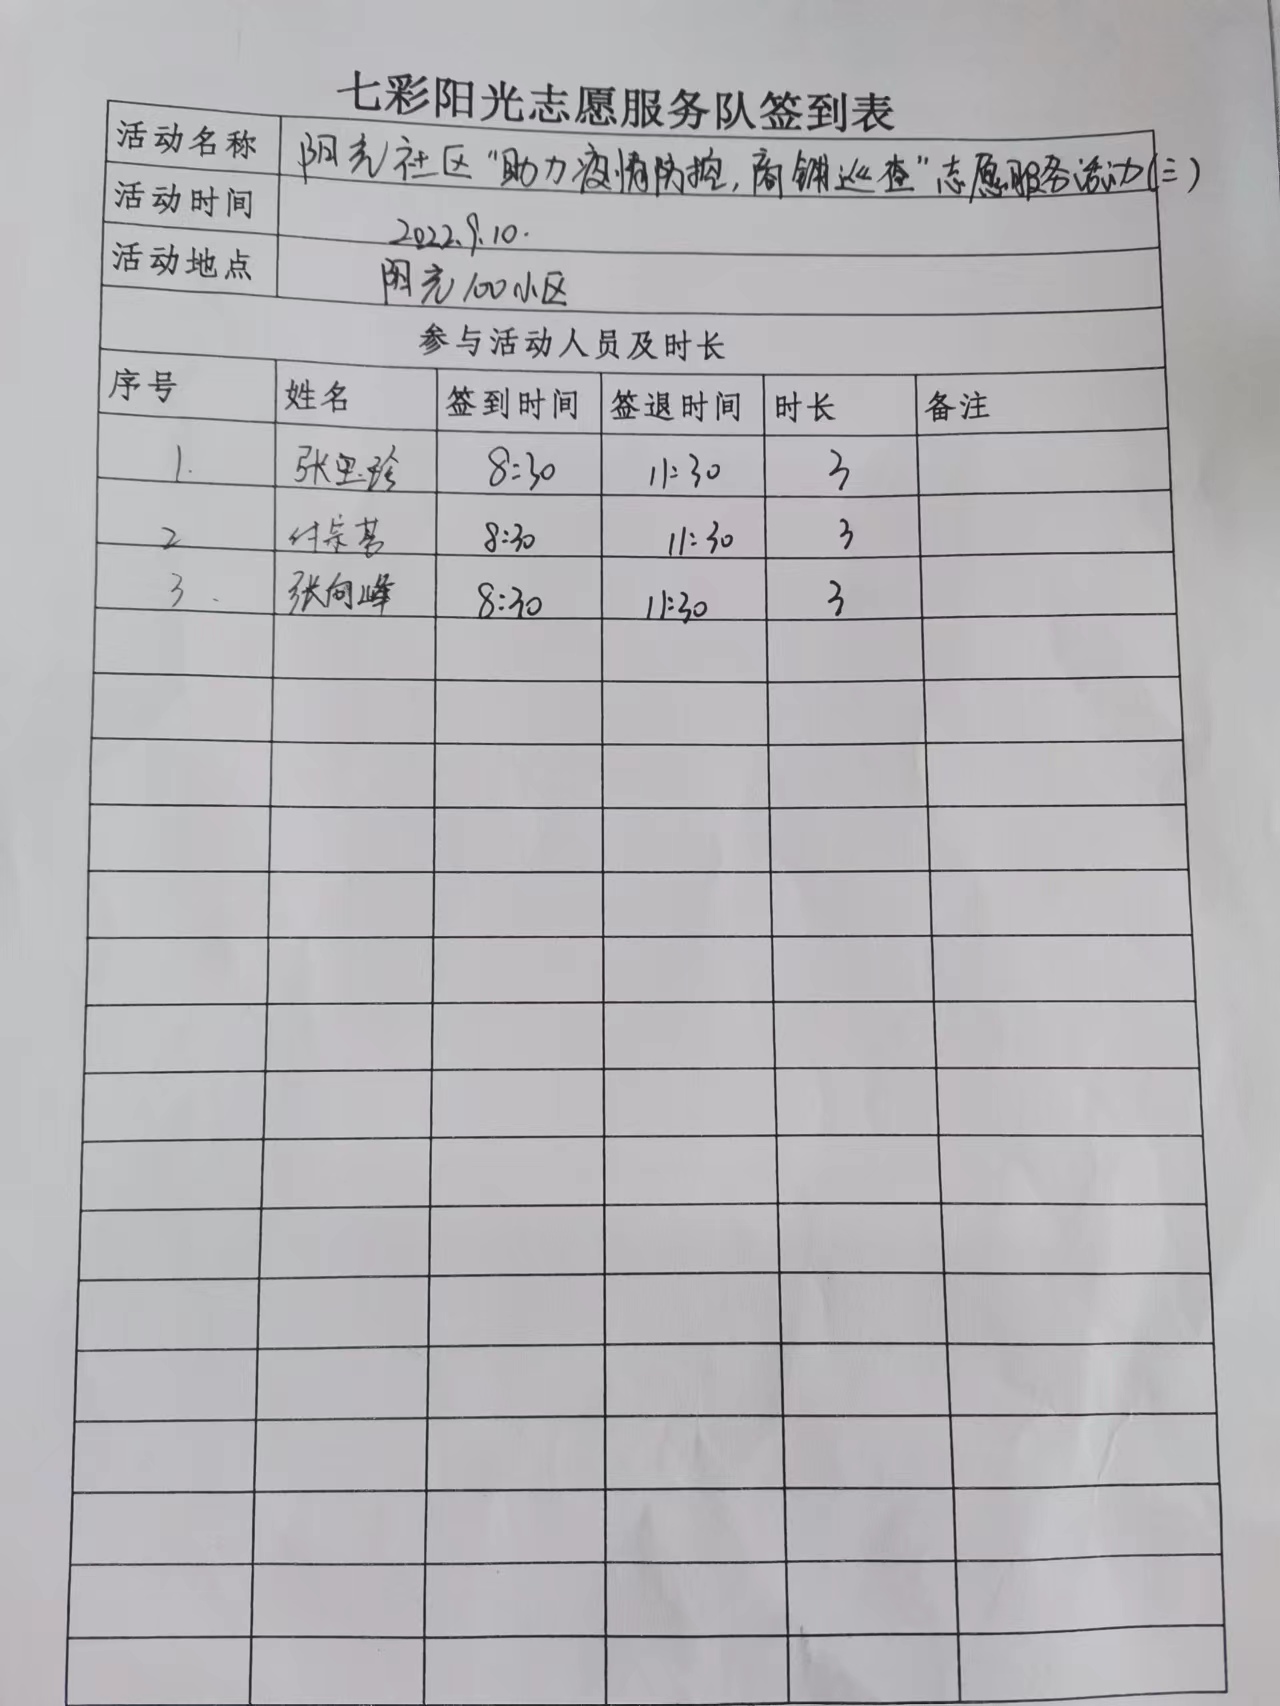 七彩阳光志愿服务队签到表
活动名称 阳光社区“助力疫情防控,商铺巡查”志愿服务活动(三)
活动时间 2022.9.10.
活动地点 阳光100小区
参与活动人员及时长
序号 姓名 签到时间 签退时间 时长 备注
1. 张 8:30 11:30 3
2 付宗 8:30 11:30 3
3. 张向峰 8:30 11:30 3